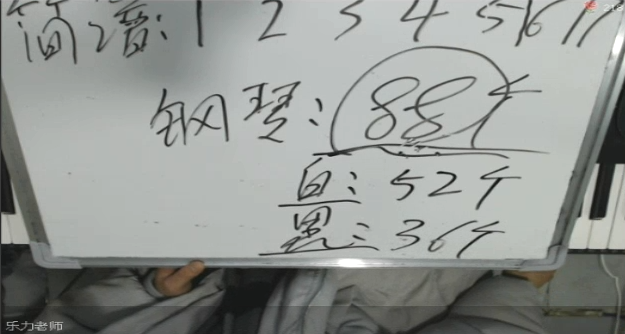 简谱: 1 2 3 4 5 6 7
钢琴: 88个
白: 52个
黑: 36个
乐力老师